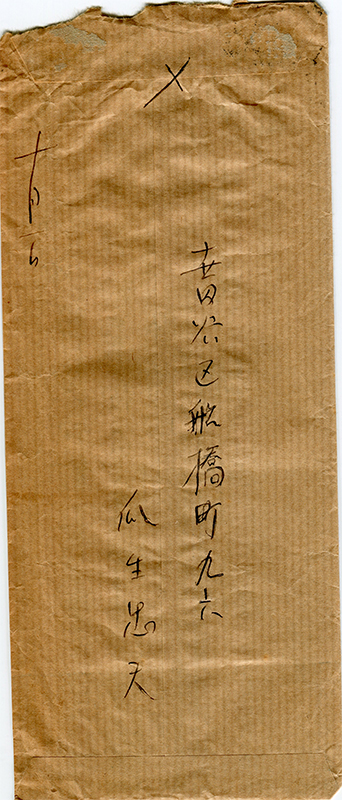 世田谷区船橋町九六
瓜生忠夫
十月六日